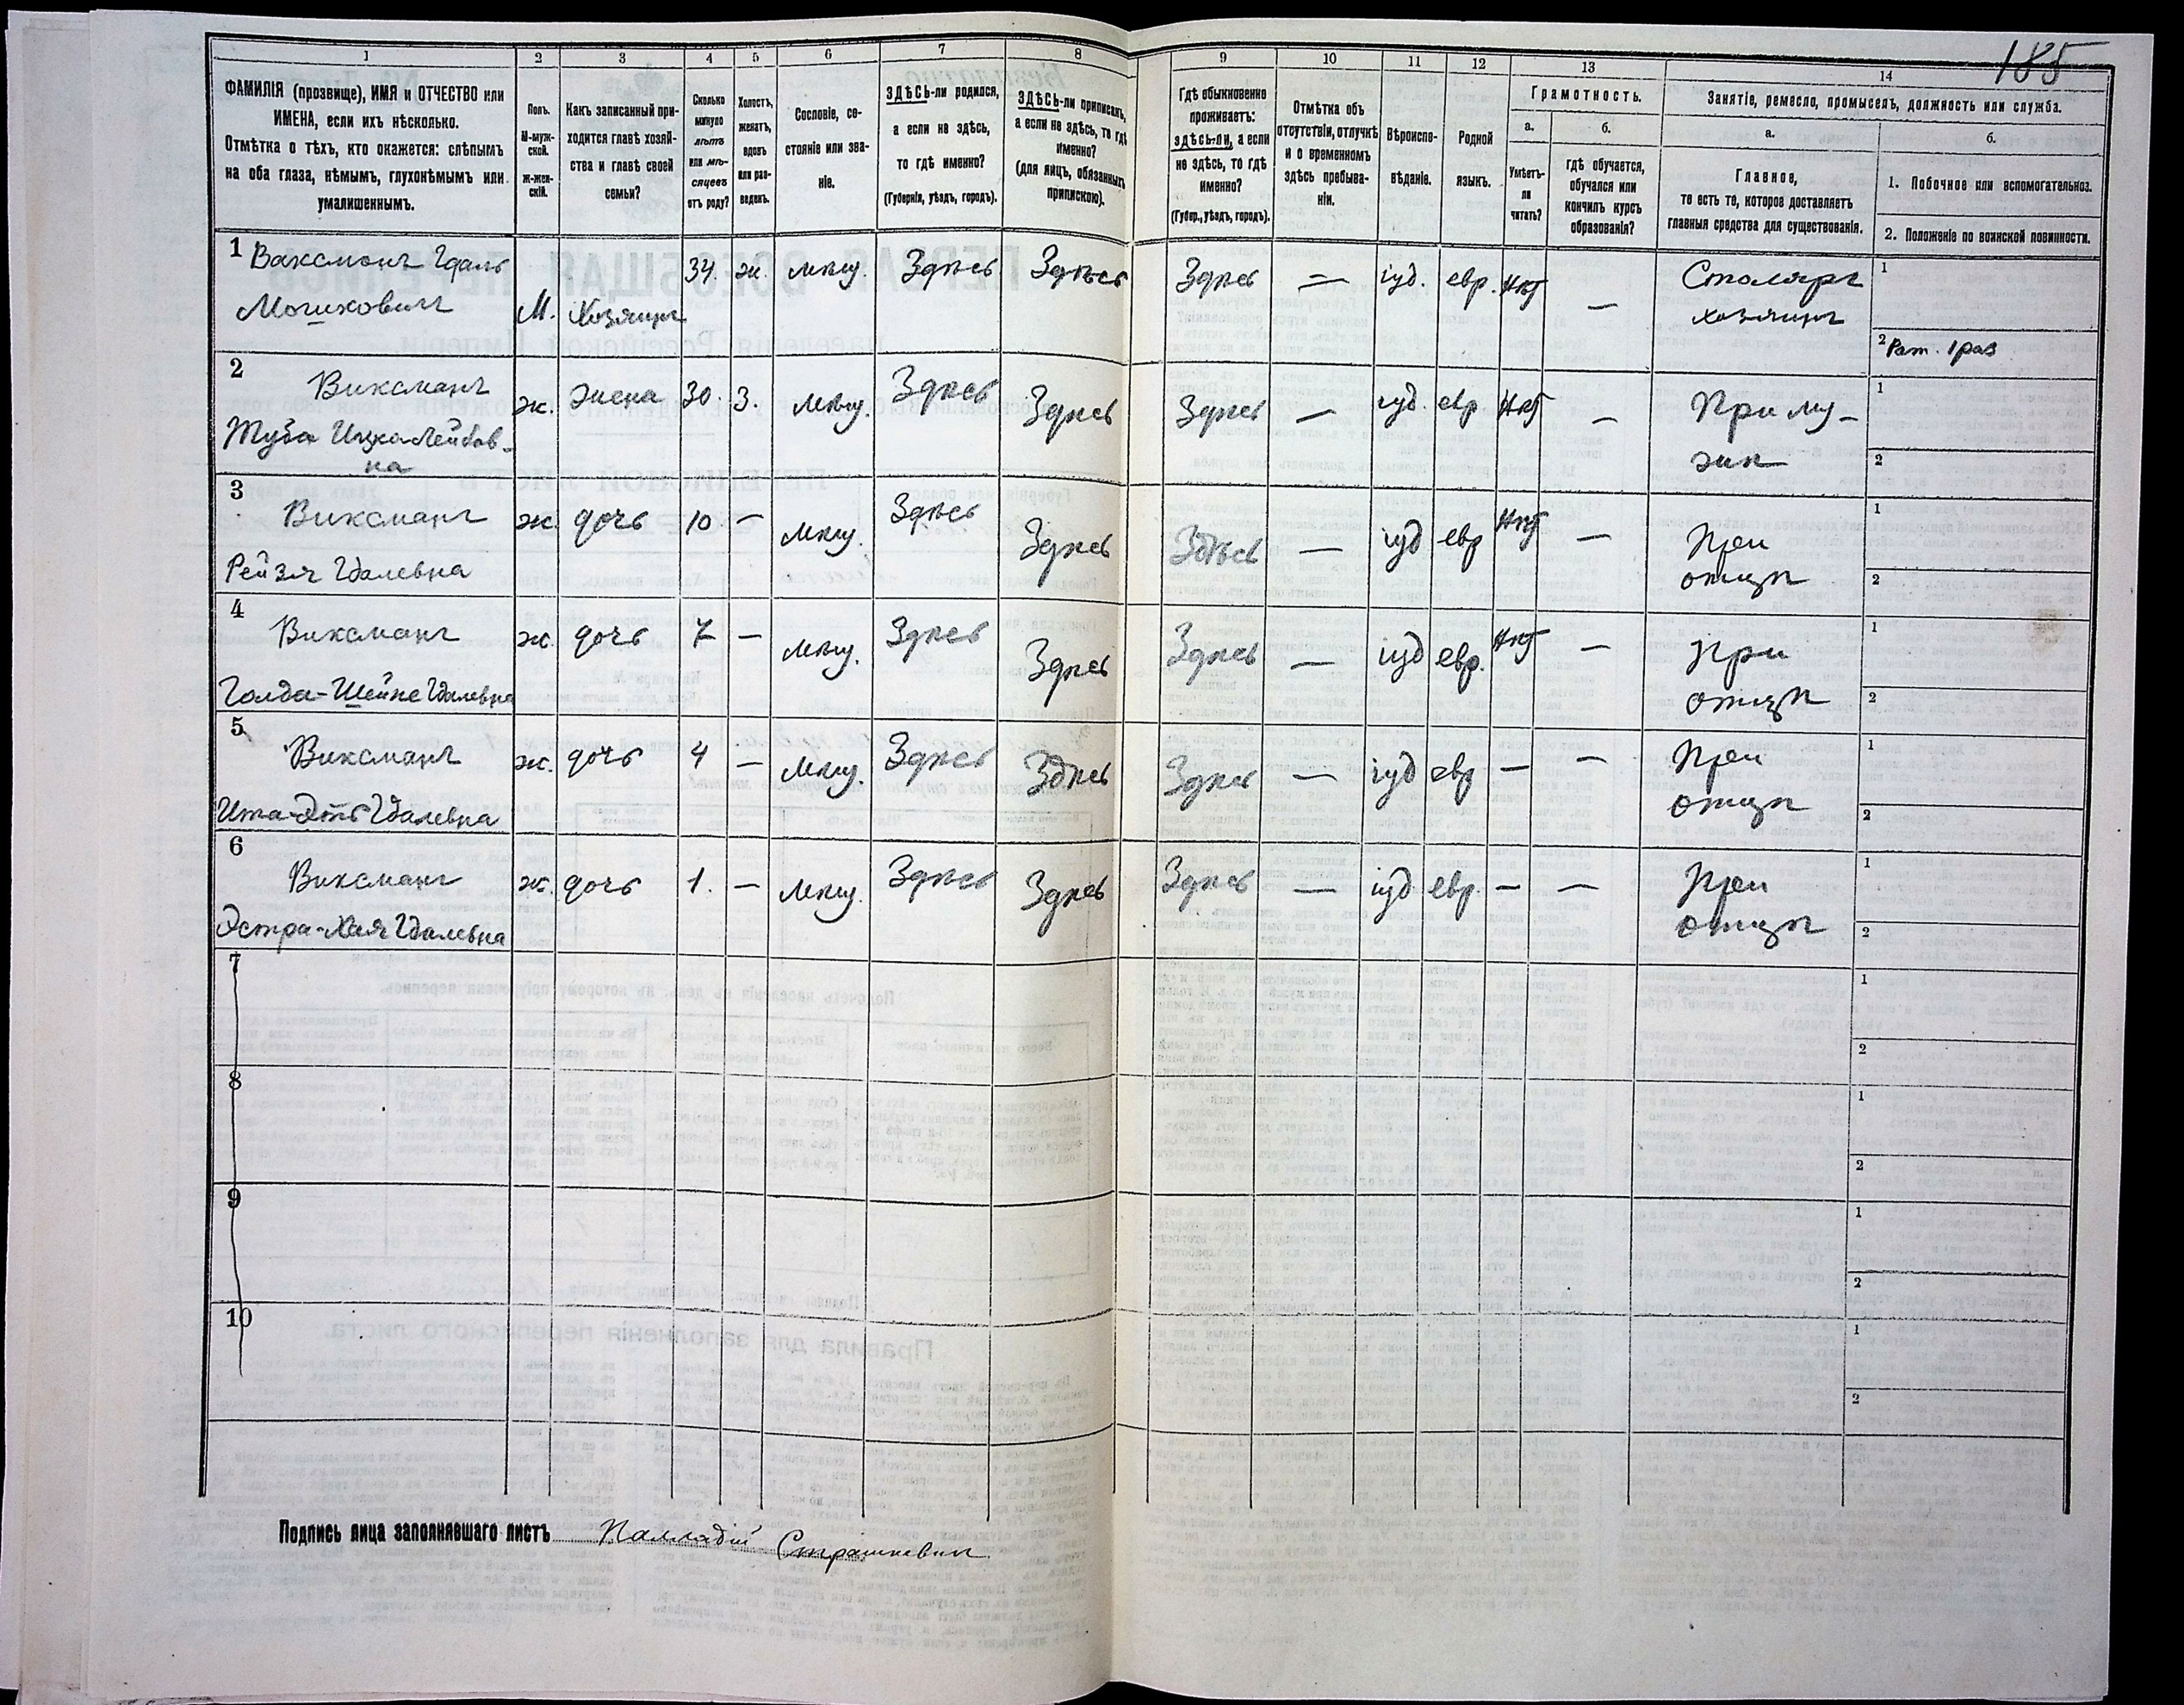 185
1 2 3 4 5 6 7 8 9 10 11 12 13 14
ФАМИЛІЯ (прозвище), ИМЯ и ОТЧЕСТВО или
ИМЕНА, если ихъ нѣсколько.
Отмѣтка о тѣхъ, кто окажется: слѣпымъ
на оба глаза, нѣмымъ, глухонѣмымъ или
умалишеннымъ.
Полъ.
М-муж-
ской.
ж-жен-
скій.
Какъ записанный при-
ходится главѣ хозяй-
ства и главѣ своей
семьи?
Сколько
минуло
лѣтъ
или мѣ-
сяцевъ
отъ роду?
Холостъ,
женатъ,
вдовъ
или раз-
веденъ.
Сословіе, со-
стояніе или зва-
ніе.
ЗДѢСЬ-ли родился,
а если не здѣсь,
то гдѣ именно?
(Губернія, уѣздъ, городъ).
ЗДѢСЬ-ли приписанъ,
а если не здѣсь, то гдѣ
именно?
(для лицъ, обязанныхъ
припискою).
Гдѣ обыкновенно
проживаетъ:
здѣсь-ли, а если
не здѣсь, то гдѣ
именно?
(Губер., уѣздъ, городъ).
Отмѣтка объ
отсутствіи, отлучкѣ
и о временномъ
здѣсь пребыва-
ніи.
Вѣроиспо-
вѣданіе.
Родной
языкъ.
Грамотность.
а.
Умѣетъ-
ли
читать?
б.
гдѣ обучается,
обучался или
кончилъ курсъ
образованія?
Занятіе, ремесло, промыселъ, должность или служба.
а.
Главное,
то есть то, которое доставляетъ
главныя средства для существованія.
б.
1. Побочное или вспомогательное.
2. Положеніе по воинской повинности.
1 Ваксманъ Гдаль
Мошковичъ
М. Хозяинъ 34. ж. мѣщ. Здѣсь Здѣсь Здѣсь — іуд. евр. нѣт —
Столяръ
хозяинъ
1
2 Рат. 1 раз
2 Виксманъ
Туба Ицколейбов-
на
ж. жена 30. З. мѣщ. Здѣсь Здѣсь Здѣсь — іуд. евр нѣт —
При му-
жѣ
1
2
3 Виксманъ
Рейзя Гдалевна
ж. дочь 10 — мѣщ. Здѣсь Здѣсь Здѣсь — іуд евр нѣт —
При
отцѣ
1
2
4 Виксманъ
Голда-Шейне Гдалевна
ж. дочь 7 — мѣщ. Здѣсь Здѣсь Здѣсь — іуд евр. нѣт —
При
отцѣ
1
2
5 Виксманъ
Ита- Гдалевна
ж. дочь 4 — мѣщ. Здѣсь Здѣсь Здѣсь — іуд евр — —
При
отцѣ
1
2
6 Виксманъ
Эстра-Хая Гдалевна
ж. дочь 1. — мѣщ. Здѣсь Здѣсь Здѣсь — іуд евр. — —
При
отцѣ
1
2
7
1
2
8
1
2
9
1
2
10
1
2
Подпись лица заполнявшаго листъ Палладій Страшкевичъ